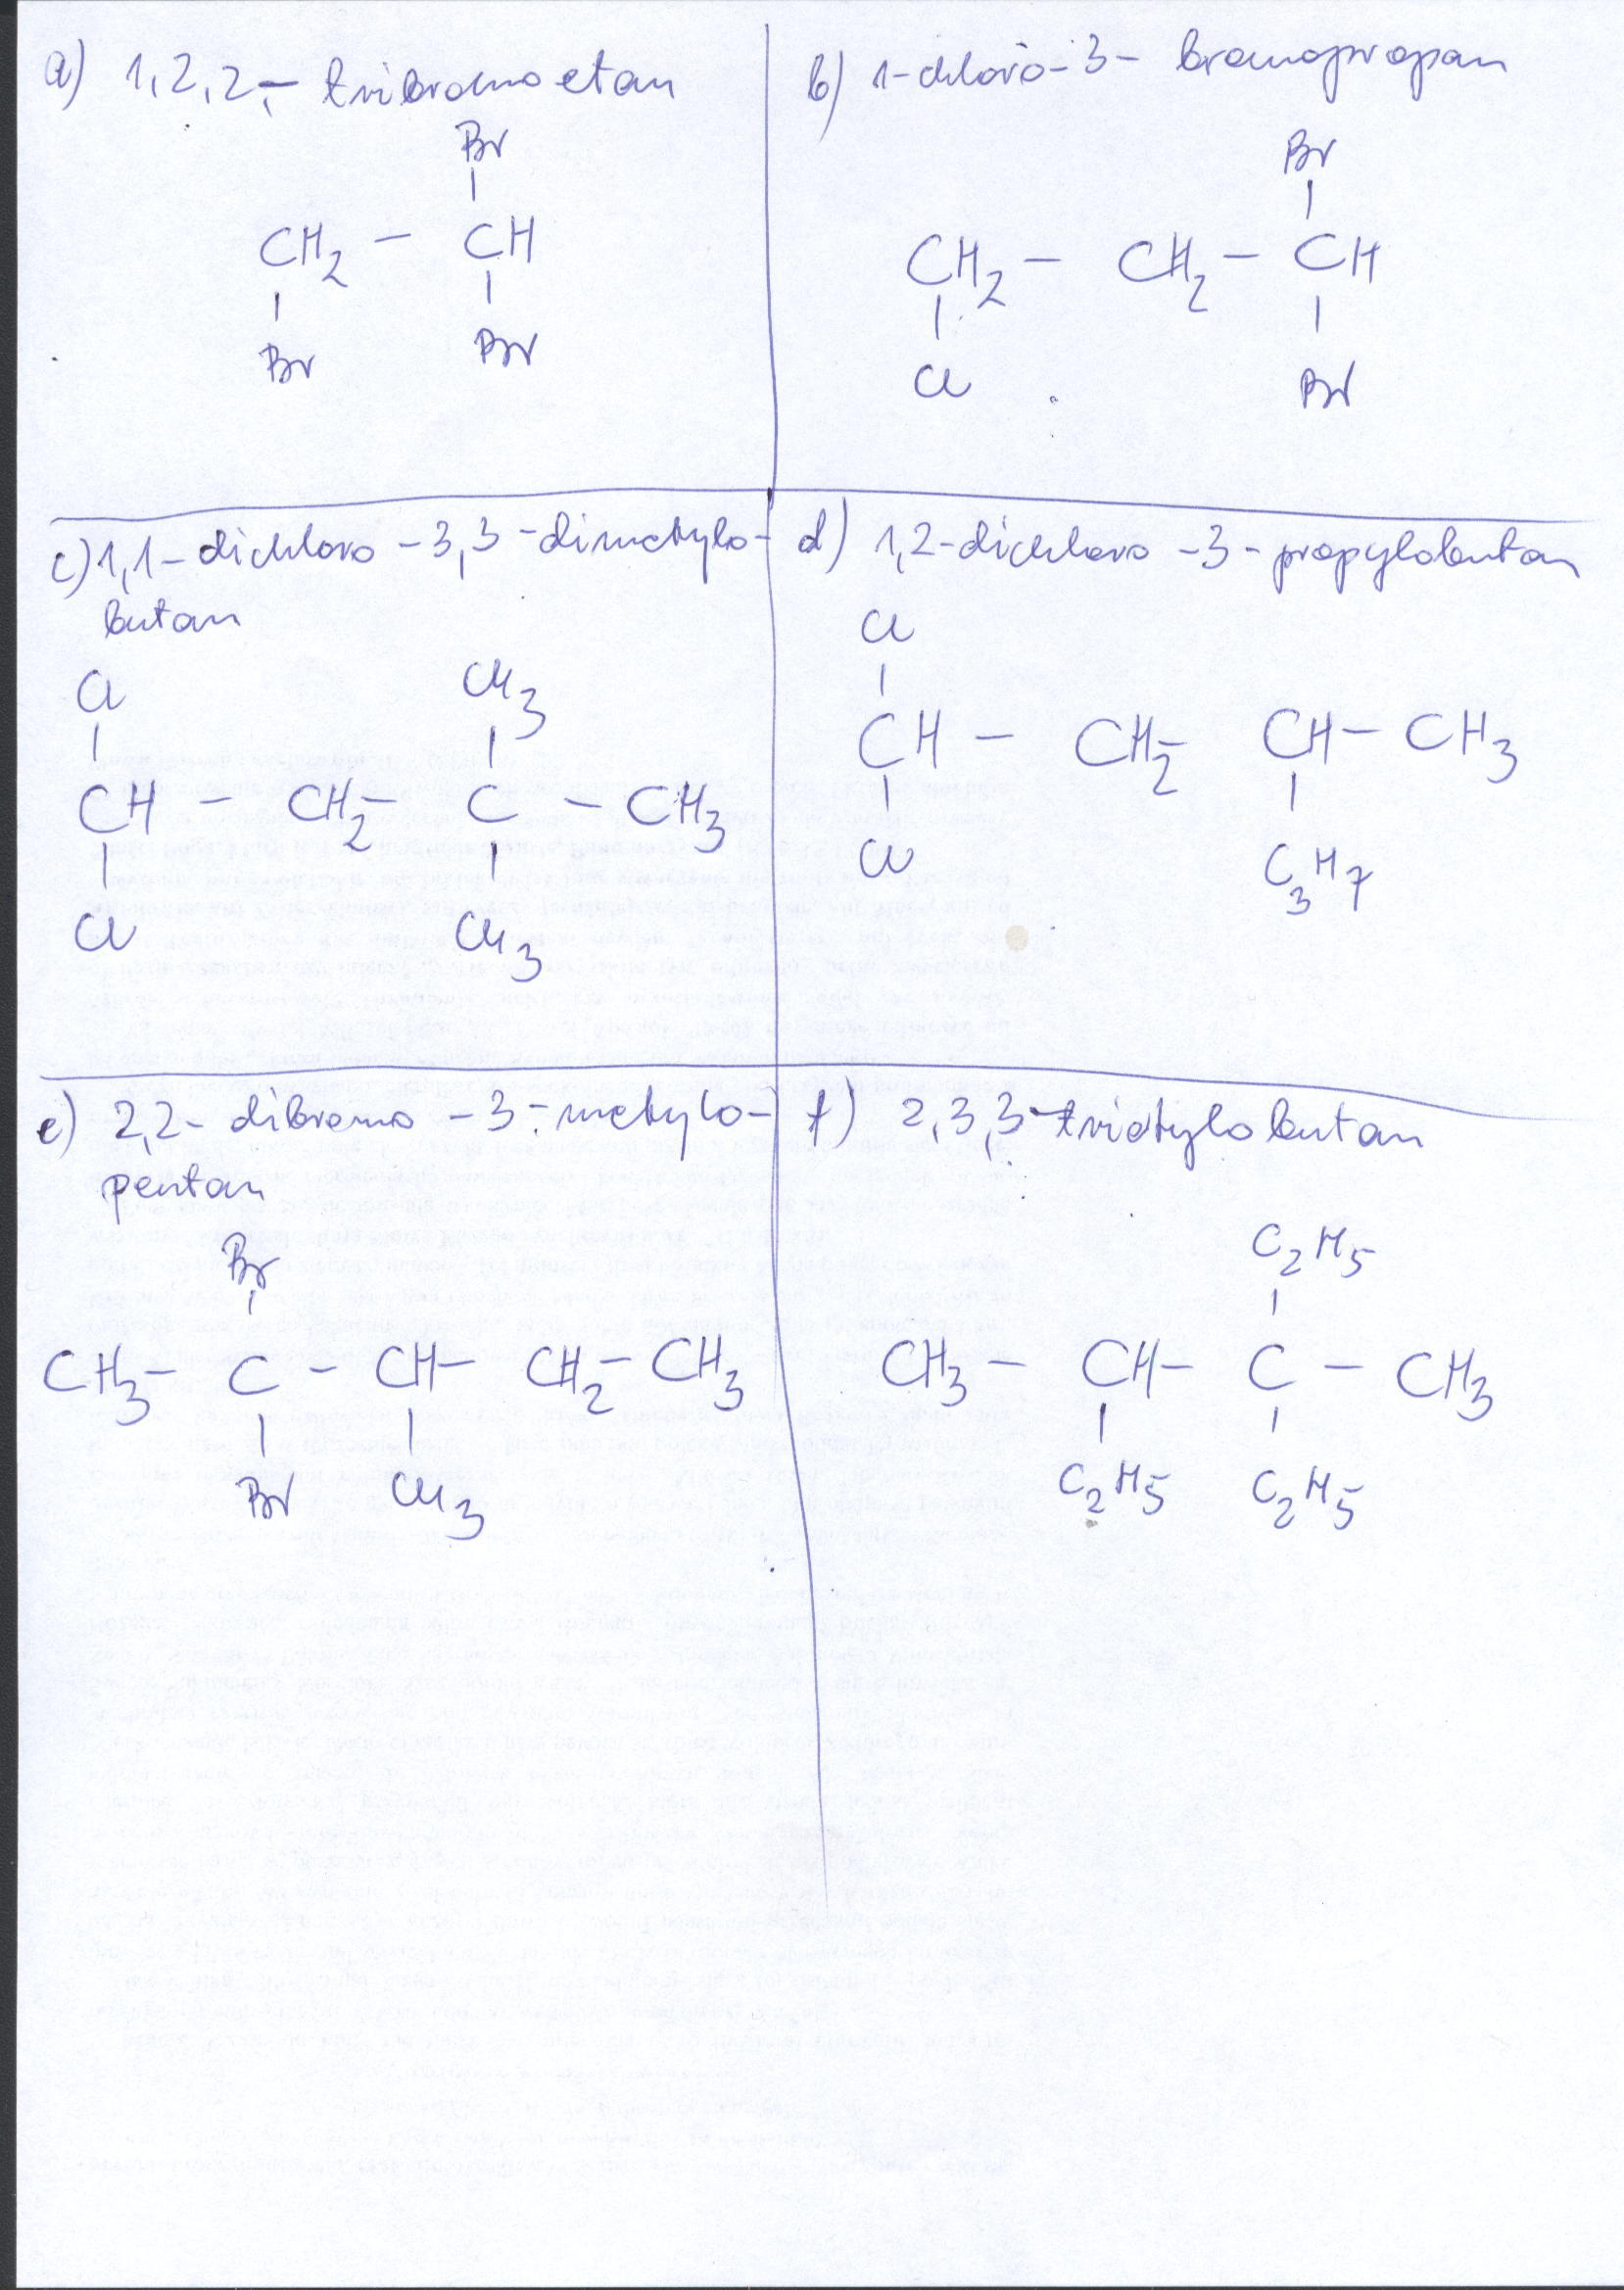 a) 1,2,2,- tribromoetan
Br
CH2 - CH
Br Br
b) 1-chloro-3- bromopropan
Br
CH2 - CH2 - CH
Cl Br
c) 1,1-dichloro-3,3-dimetylo-
butan
Cl CH3
CH - CH2 - C - CH3
Cl CH3
d) 1,2-dichloro-3-propylobutan
Cl
CH - CH2 - CH - CH3
Cl C3H7
e) 2,2-dibromo-3-metylo-
pentan
Br
CH3 - C - CH - CH2 - CH3
Br CH3
f) 2,3,3-trietylobutan
C2H5
CH3 - CH - C - CH3
C2H5 C2H5